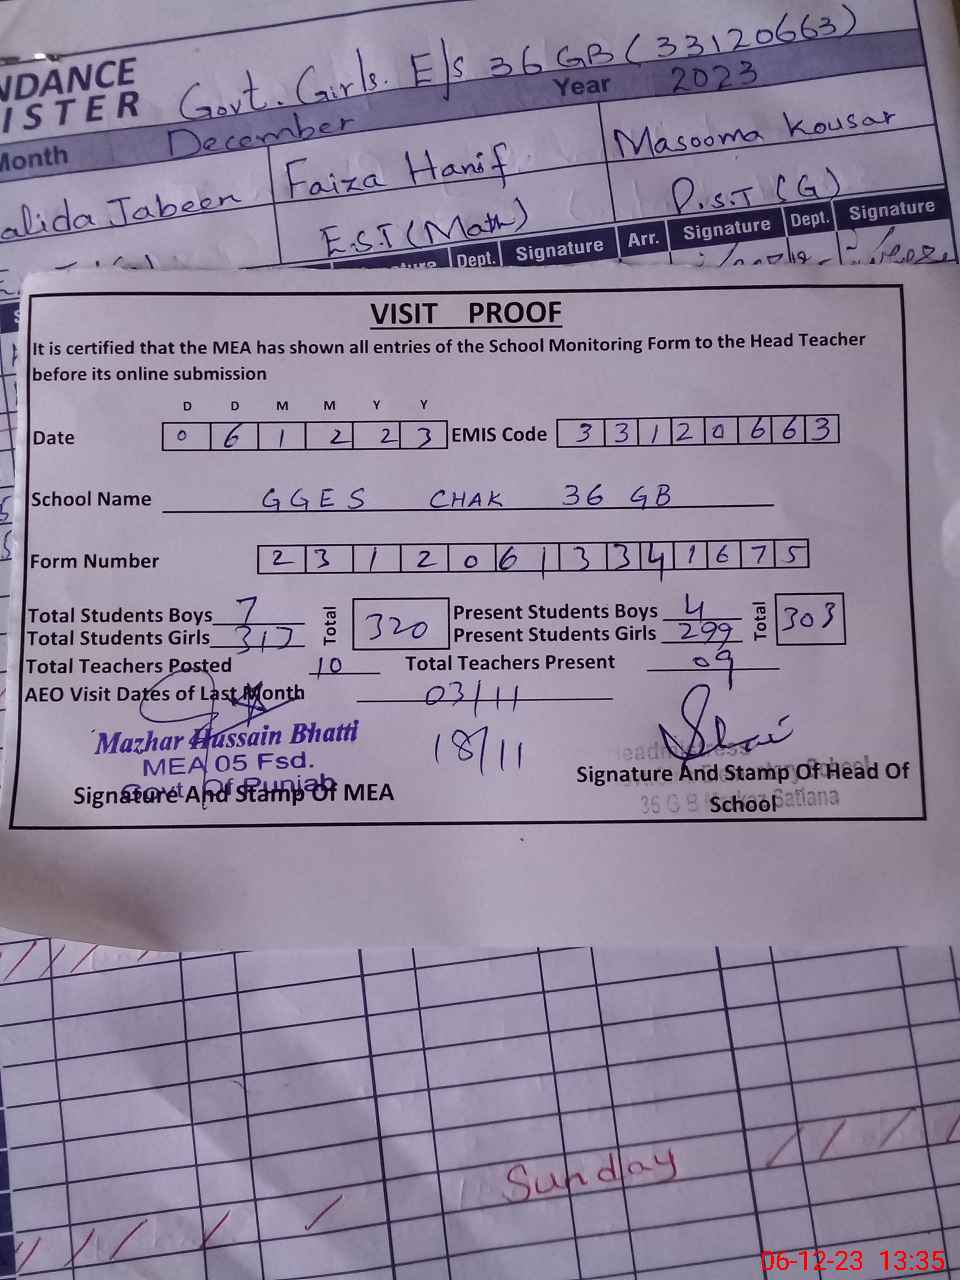 NDANCE Govt. Girls. E/s 36 GB (33120663)
ISTER
Month December Year 2023
alida Jabeen Faiza Hanif Masooma Kousar
E.S.T (Math) P.S.T (G)
Dept. Signature Arr. Signature Dept. Signature
VISIT PROOF
It is certified that the MEA has shown all entries of the School Monitoring Form to the Head Teacher
before its online submission
D D M M Y Y
Date 0 6 1 2 2 3 EMIS Code 3 3 1 2 0 6 6 3
School Name GGES CHAK 36 GB
Form Number 2 3 1 2 0 6 1 3 3 4 1 6 7 5
Total Students Boys 7 Total 320 Present Students Boys 4 Total 303
Total Students Girls 313 Present Students Girls 299
Total Teachers Posted 10 Total Teachers Present 09
AEO Visit Dates of Last Month 03/11
18/11
Mazhar Hussain Bhatti
MEA 05 Fsd.
Govt. Of Punjab
Signature And Stamp Of MEA
Headmistress
Elementary School
36 G B Markaz Satiana
Signature And Stamp Of Head Of
School
Sunday
06-12-23 13:35